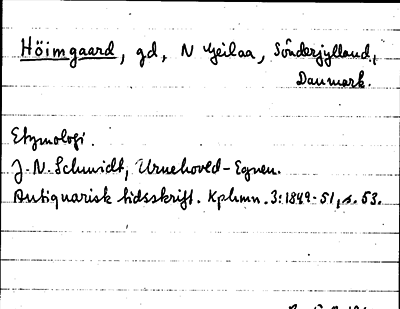 Höimgaard, gd, N Geilaa, Sönderjylland,
Danmark.
Etymologi.
J. N. Schmidt, Urnehoved-Egnen.
Antiquarisk tidsskrift. Kphmn. 3:1849-51, s. 53.